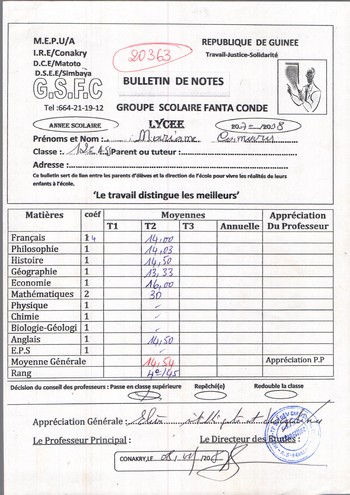 M.E.P.U/A
I.R.E/Conakry
D.C.E/Matoto
D.S.E.E/Simbaya
G.S.F.C
Tel :664-21-19-12
20363
REPUBLIQUE DE GUINEE
Travail-Justice-Solidarité
BULLETIN DE NOTES
GROUPE SCOLAIRE FANTA CONDE
ANNEE SCOLAIRE LYCEE
Prénoms et Nom :
Classe : Parent ou tuteur :
Adresse :
Ce bulletin sert de lien entre les parents d'élèves et la direction de l'école pour vivre les réalités de leurs
enfants à l'école.
'Le travail distingue les meilleurs'
Matières coéf Moyennes Appréciation
T1 T2 T3 Annuelle Du Professeur
Français 14,00
Philosophie 1 14,03
Histoire 1 14,50
Géographie 1 13,33
Economie 1 16,00
Mathématiques 2 30
Physique 1 -
Chimie 1 -
Biologie-Géologi 1 -
Anglais 1 14,50
E.P.S 1 -
Moyenne Générale 14,54 Appréciation P.P
Rang 4e/45
Décision du conseil des professeurs : Passe en classe supérieure Repêché(e) Redouble la classe
Appréciation Générale : intelligent et
Le Professeur Principal : Le Directeur des Etudes :
CONAKRY,LE